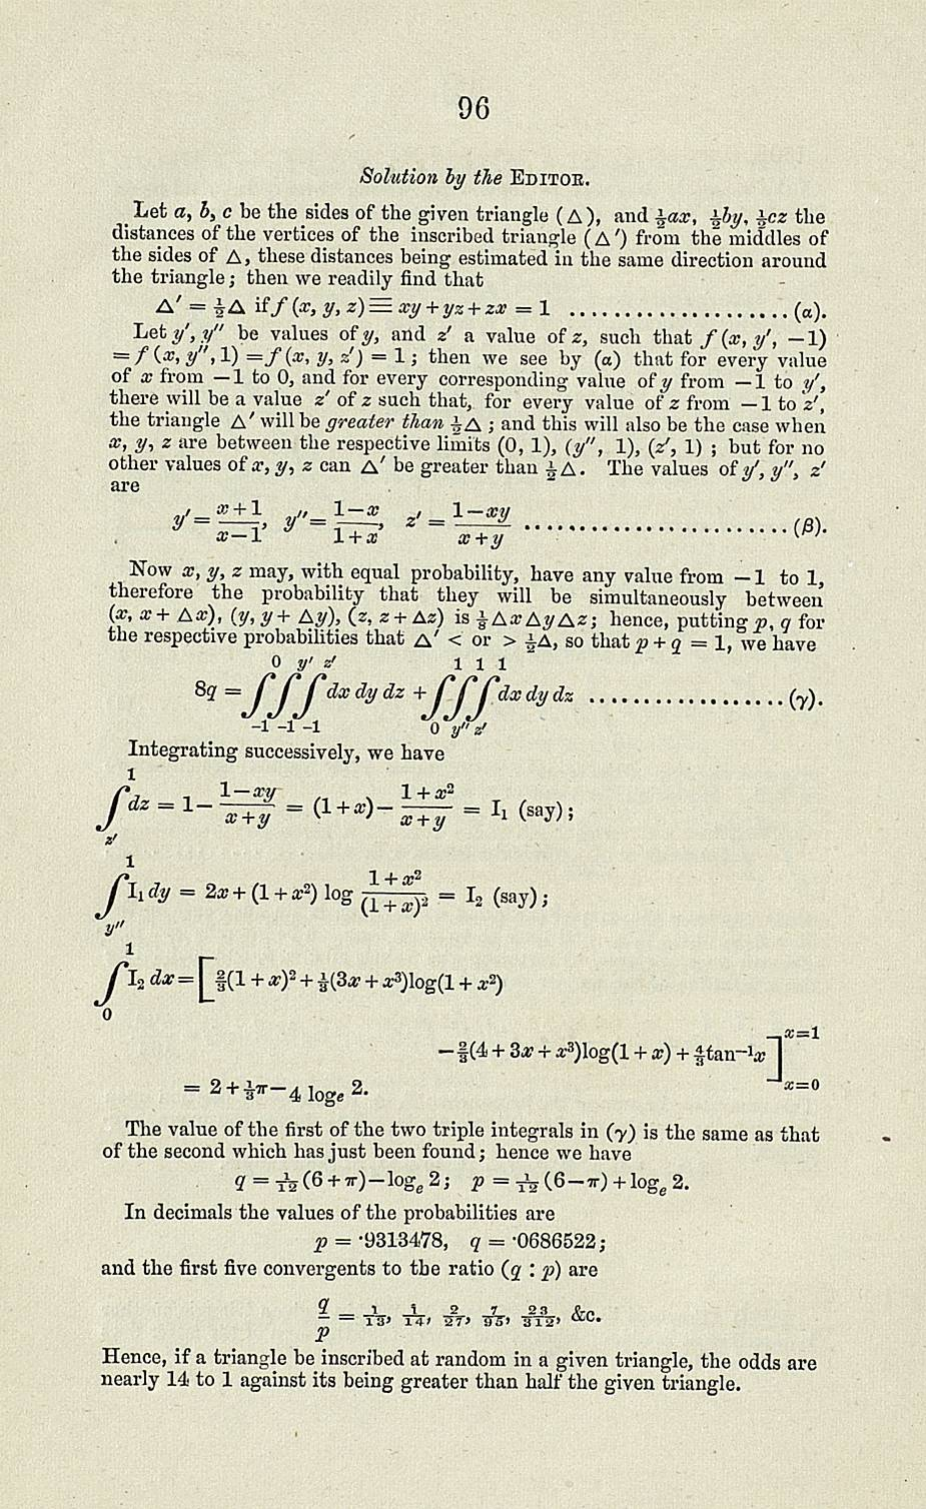 96
Solution by the EDITOR.
Let a, b, c be the sides of the given triangle (△), and ½ax, ½by, ½cz the
distances of the vertices of the inscribed triangle (△′) from the middles of
the sides of △, these distances being estimated in the same direction around
the triangle; then we readily find that
△′ = ½△ if f (x, y, z) ≡ xy + yz + zx = 1 ..................... (α).
Let y′, y″ be values of y, and z′ a value of z, such that f (x, y′, −1)
= f (x, y″, 1) = f (x, y, z′) = 1; then we see by (α) that for every value
of x from −1 to 0, and for every corresponding value of y from −1 to y′,
there will be a value z′ of z such that, for every value of z from −1 to z′,
the triangle △′ will be greater than ½△; and this will also be the case when
x, y, z are between the respective limits (0, 1), (y″, 1), (z′, 1); but for no
other values of x, y, z can △′ be greater than ½△. The values of y′, y″, z′
are
y′ = (x+1)/(x−1), y″ = (1−x)/(1+x), z′ = (1−xy)/(x+y) ......................... (β).
Now x, y, z may, with equal probability, have any value from −1 to 1,
therefore the probability that they will be simultaneously between
(x, x + △x), (y, y + △y), (z, z + △z) is ⅛△x△y△z; hence, putting p, q for
the respective probabilities that △′ < or > ½△, so that p + q = 1, we have
8q = ∫_{-1}^{0} ∫_{-1}^{y′} ∫_{-1}^{z′} dx dy dz + ∫_{0}^{1} ∫_{y″}^{1} ∫_{z′}^{1} dx dy dz ................... (γ).
Integrating successively, we have
∫_{z′}^{1} dz = 1 − (1−xy)/(x+y) = (1+x) − (1+x²)/(x+y) = I₁ (say);
∫_{y″}^{1} I₁ dy = 2x + (1+x²) log (1+x²)/(1+x)² = I₂ (say);
∫_{0}^{1} I₂ dx = [⅔(1+x)² + ⅓(3x+x³)log(1+x²)
−⅔(4+3x+x³)log(1+x) + 4/3 tan⁻¹x]_{x=0}^{x=1}
= 2 + ⅓π − 4 logₑ 2.
The value of the first of the two triple integrals in (γ) is the same as that
of the second which has just been found; hence we have
q = 1/12 (6+π) − logₑ 2; p = 1/12 (6−π) + logₑ 2.
In decimals the values of the probabilities are
p = ·9313478, q = ·0686522;
and the first five convergents to the ratio (q : p) are
q/p = 1/13, 1/14, 2/27, 7/95, 23/312, &c.
Hence, if a triangle be inscribed at random in a given triangle, the odds are
nearly 14 to 1 against its being greater than half the given triangle.